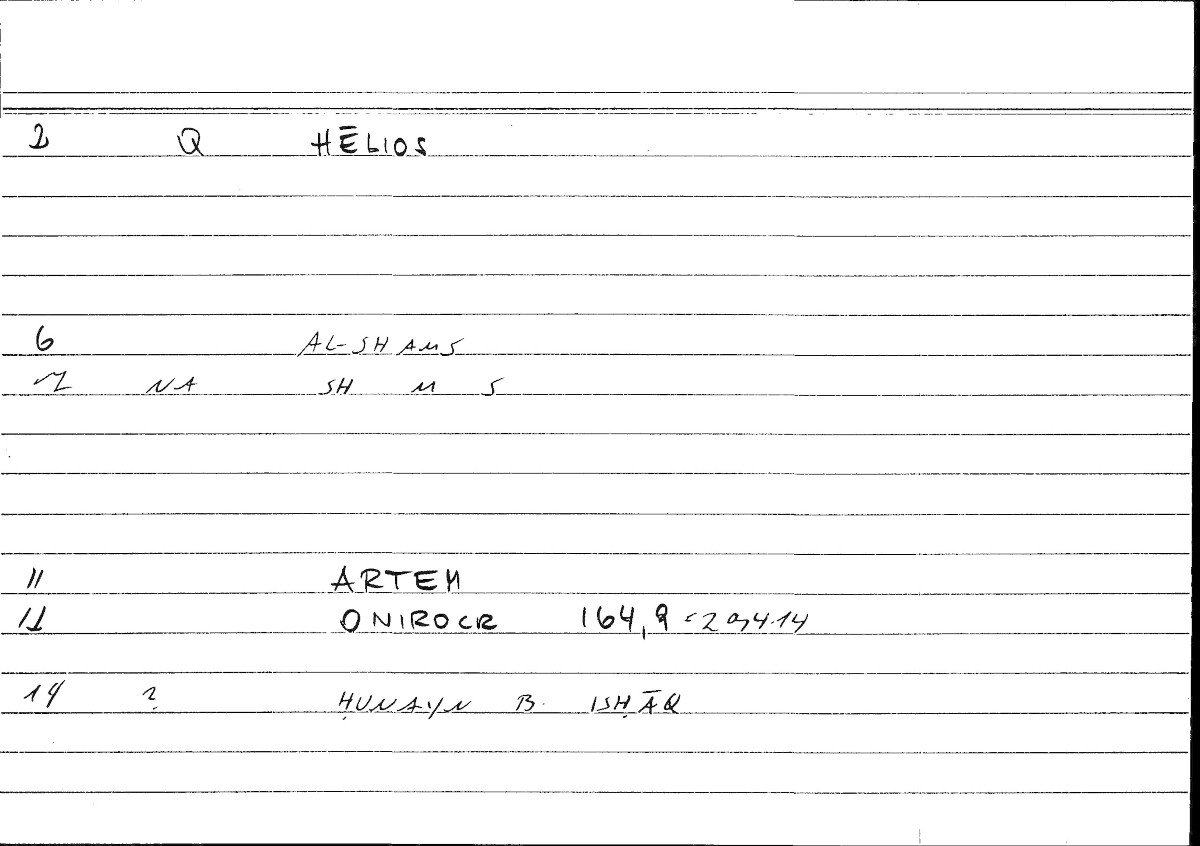 2 Q HĒLIOS
6 AL-SHAMS
7 NA SH M S
11 ARTEM
12 ONIROCR 164,9
14 ? ḤUNAYN B. ISḤĀQ